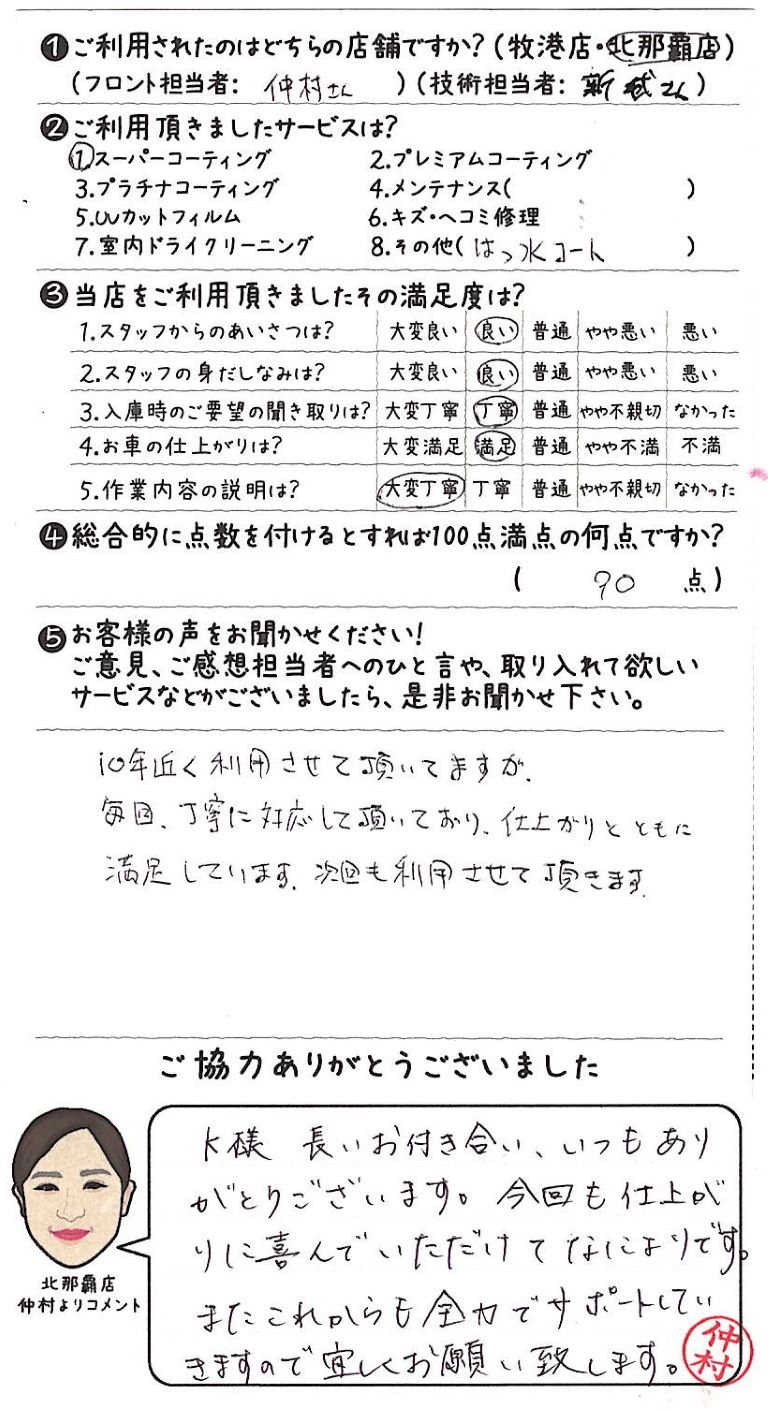 ❶ご利用されたのはどちらの店舗ですか?(牧港店・北那覇店)
(フロント担当者: 仲村さん )(技術担当者: 新城さん)
❷ご利用頂きましたサービスは?
1.スーパーコーティング 2.プレミアムコーティング
3.プラチナコーティング 4.メンテナンス( )
5.UVカットフィルム 6.キズ・ヘコミ修理
7.室内ドライクリーニング 8.その他(はっ水コート )
❸当店をご利用頂きましたその満足度は?
1.スタッフからのあいさつは? 大変良い 良い 普通 やや悪い 悪い
2.スタッフの身だしなみは? 大変良い 良い 普通 やや悪い 悪い
3.入庫時のご要望の聞き取りは? 大変丁寧 丁寧 普通 やや不親切 なかった
4.お車の仕上がりは? 大変満足 満足 普通 やや不満 不満
5.作業内容の説明は? 大変丁寧 丁寧 普通 やや不親切 なかった
❹総合的に点数を付けるとすれば100点満点の何点ですか?
( 90 点)
❺お客様の声をお聞かせください!
ご意見、ご感想担当者へのひと言や、取り入れて欲しい
サービスなどがございましたら、是非お聞かせ下さい。
10年近く利用させて頂いてますが、
毎回、丁寧に対応して頂いており、仕上がりとともに
満足しています。次回も利用させて頂きます。
ご協力ありがとうございました
K様 長いお付き合い、いつもあり
がとうございます。今回も仕上が
りに喜んでいただけてなによりです。
またこれからも全力でサポートしてい
きますので宜しくお願い致します。
仲村
北那覇店
仲村よりコメント